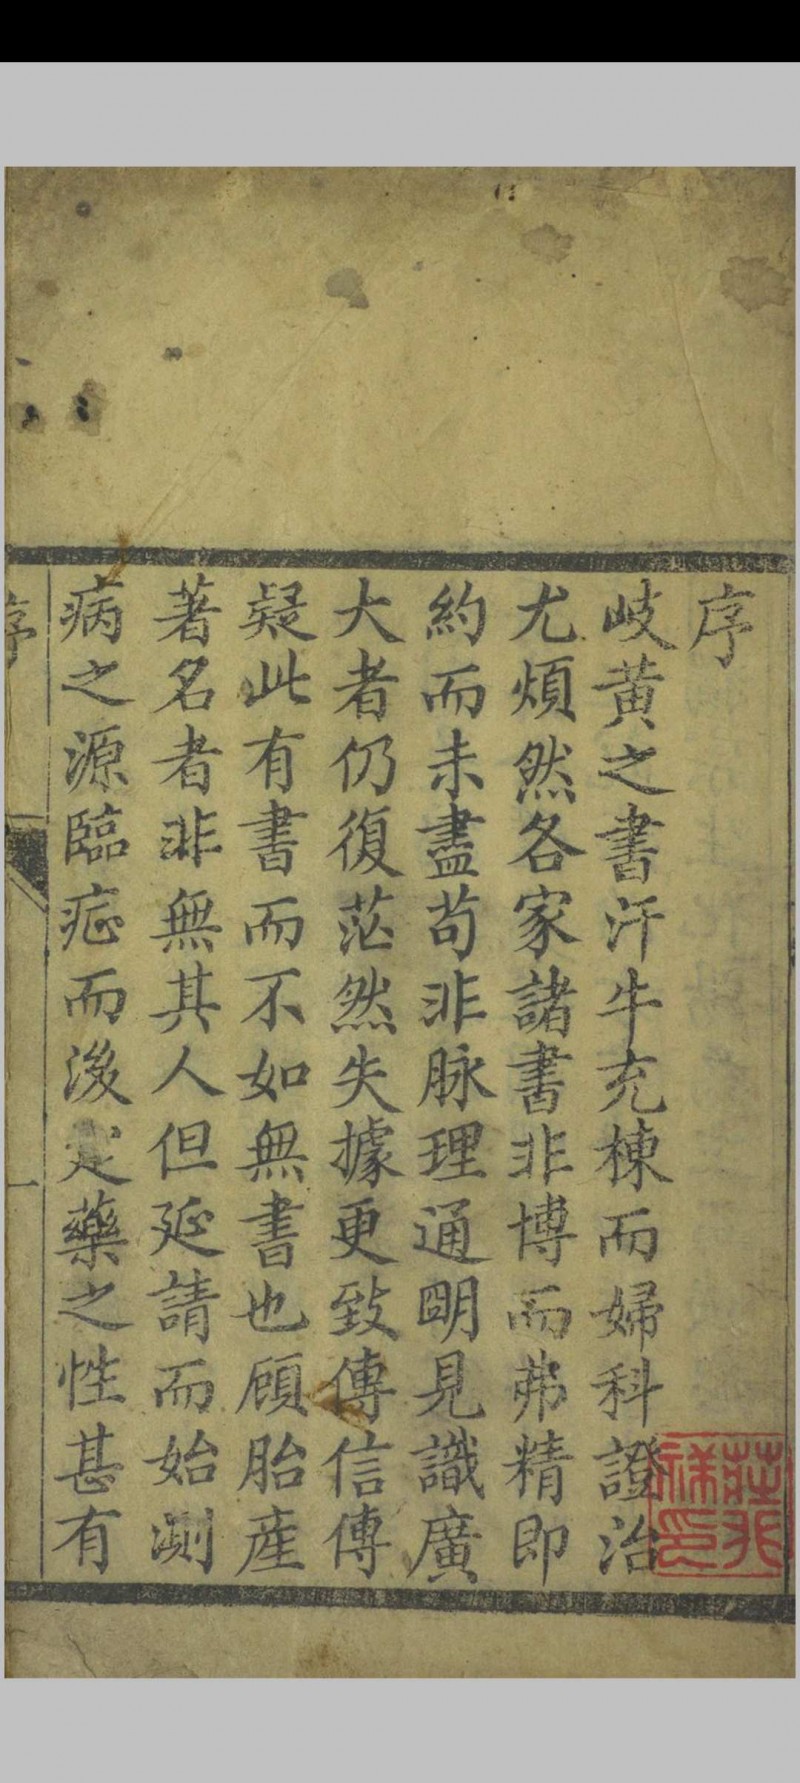 序
岐黄之書汗牛充棟而婦科證治
尤煩然各家諸書非博而弗精即
約而未盡苟非脉理通明見識廣
大者仍復茫然失據更致傳信傳
疑此有書而不如無書也顧胎產
著名者非無其人但延請而始測
病之源臨症而後定藥之性甚有
序
一